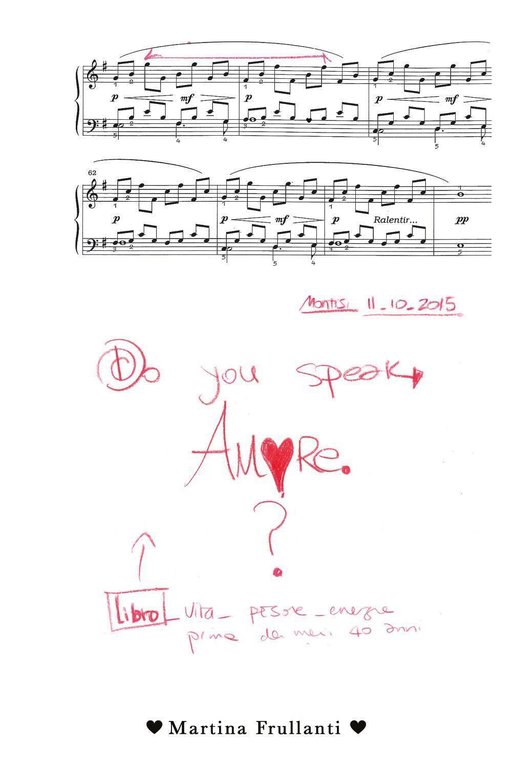 p mf p p mf
62
p p mf p Ralentir... pp
Montisi 11_10_2015
Do you speak
AM♥Re.
?
Libro Vita_ persone_energie
prima dei miei 40 anni
♥ Martina Frullanti ♥